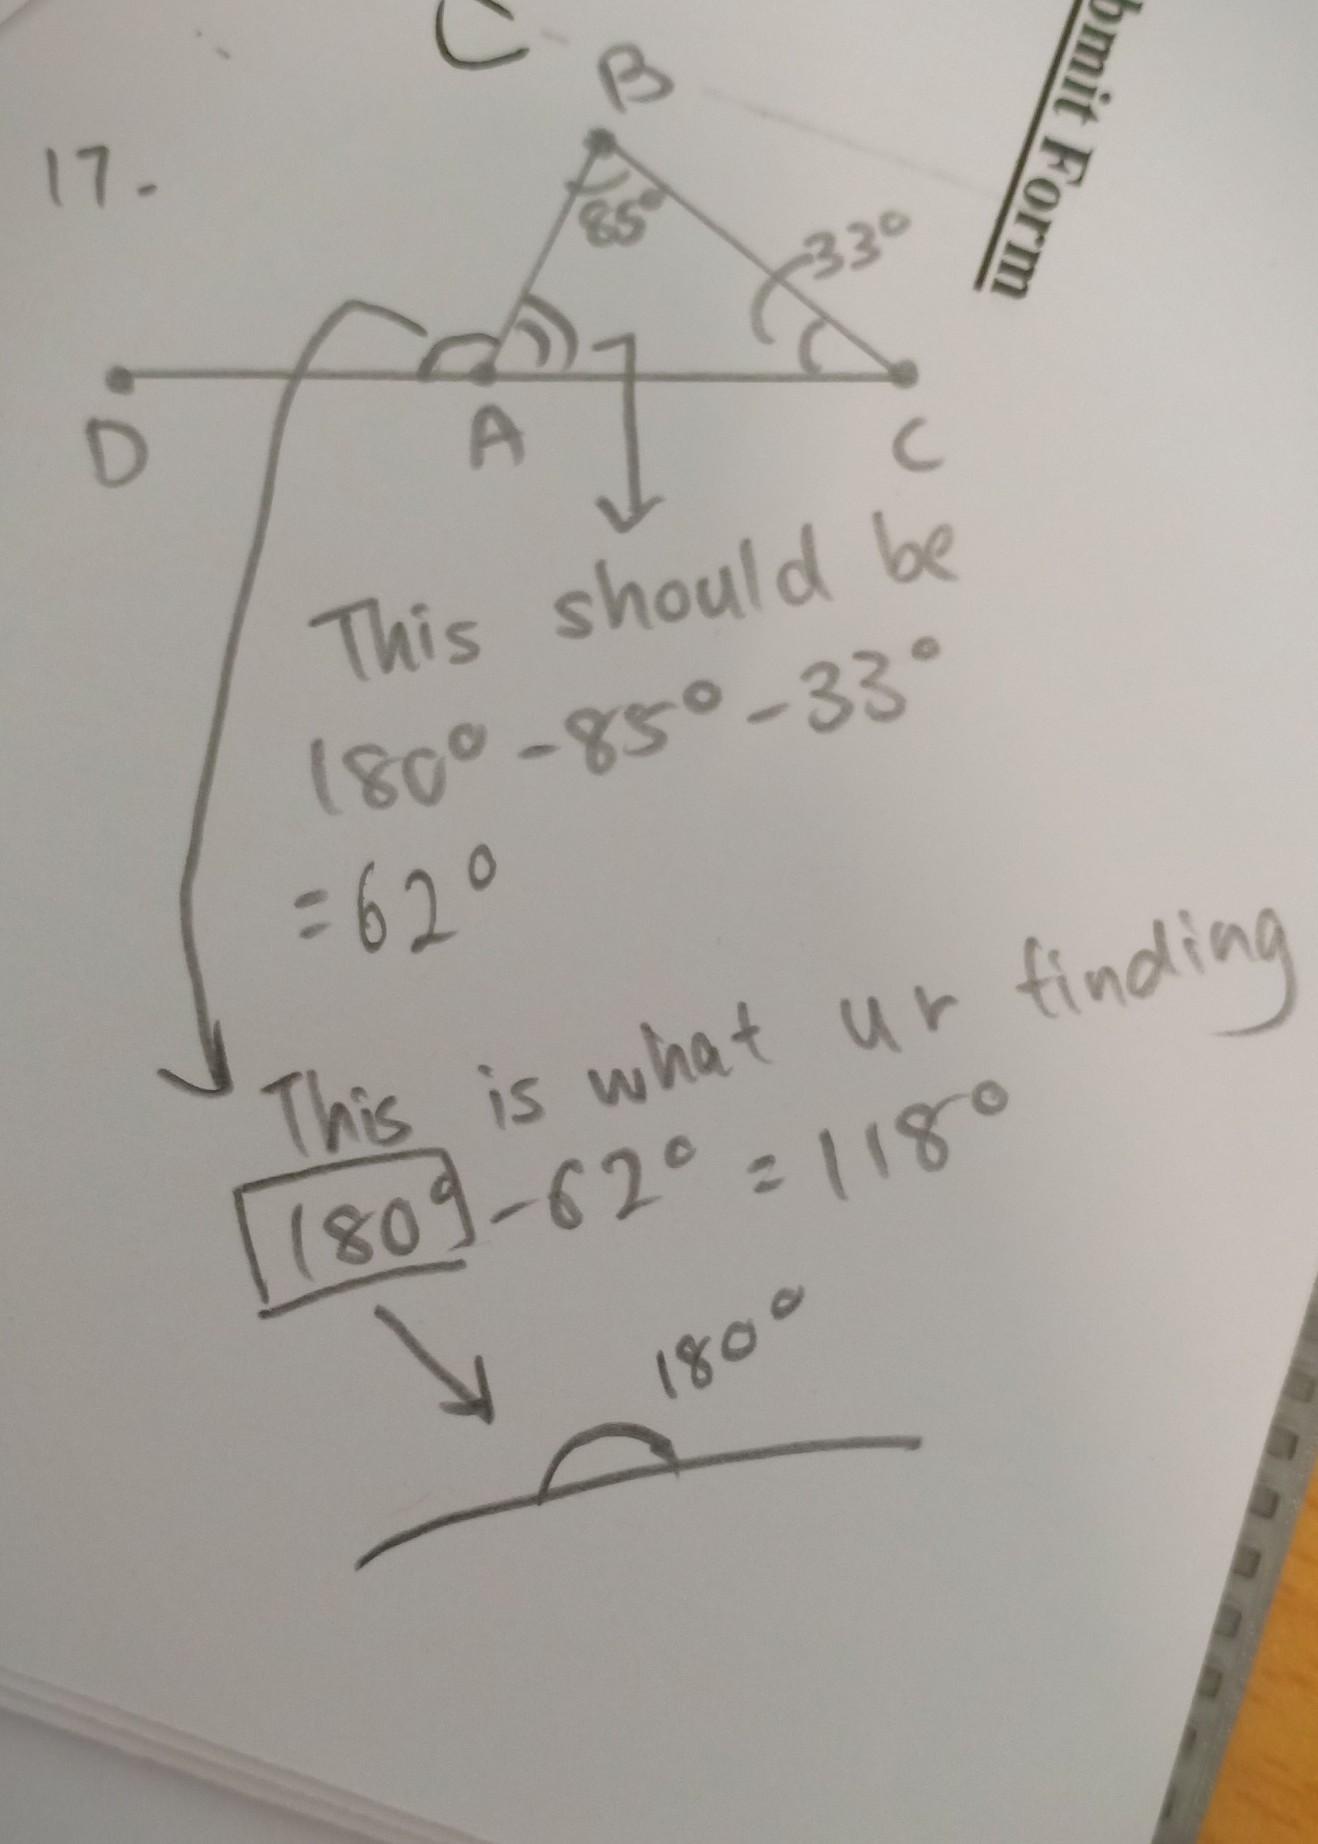 bmit Form
C
B
17.
85°
33°
D
A
C
This should be
180° - 85° - 33°
= 62°
This is what ur finding
180° - 62° = 118°
180°